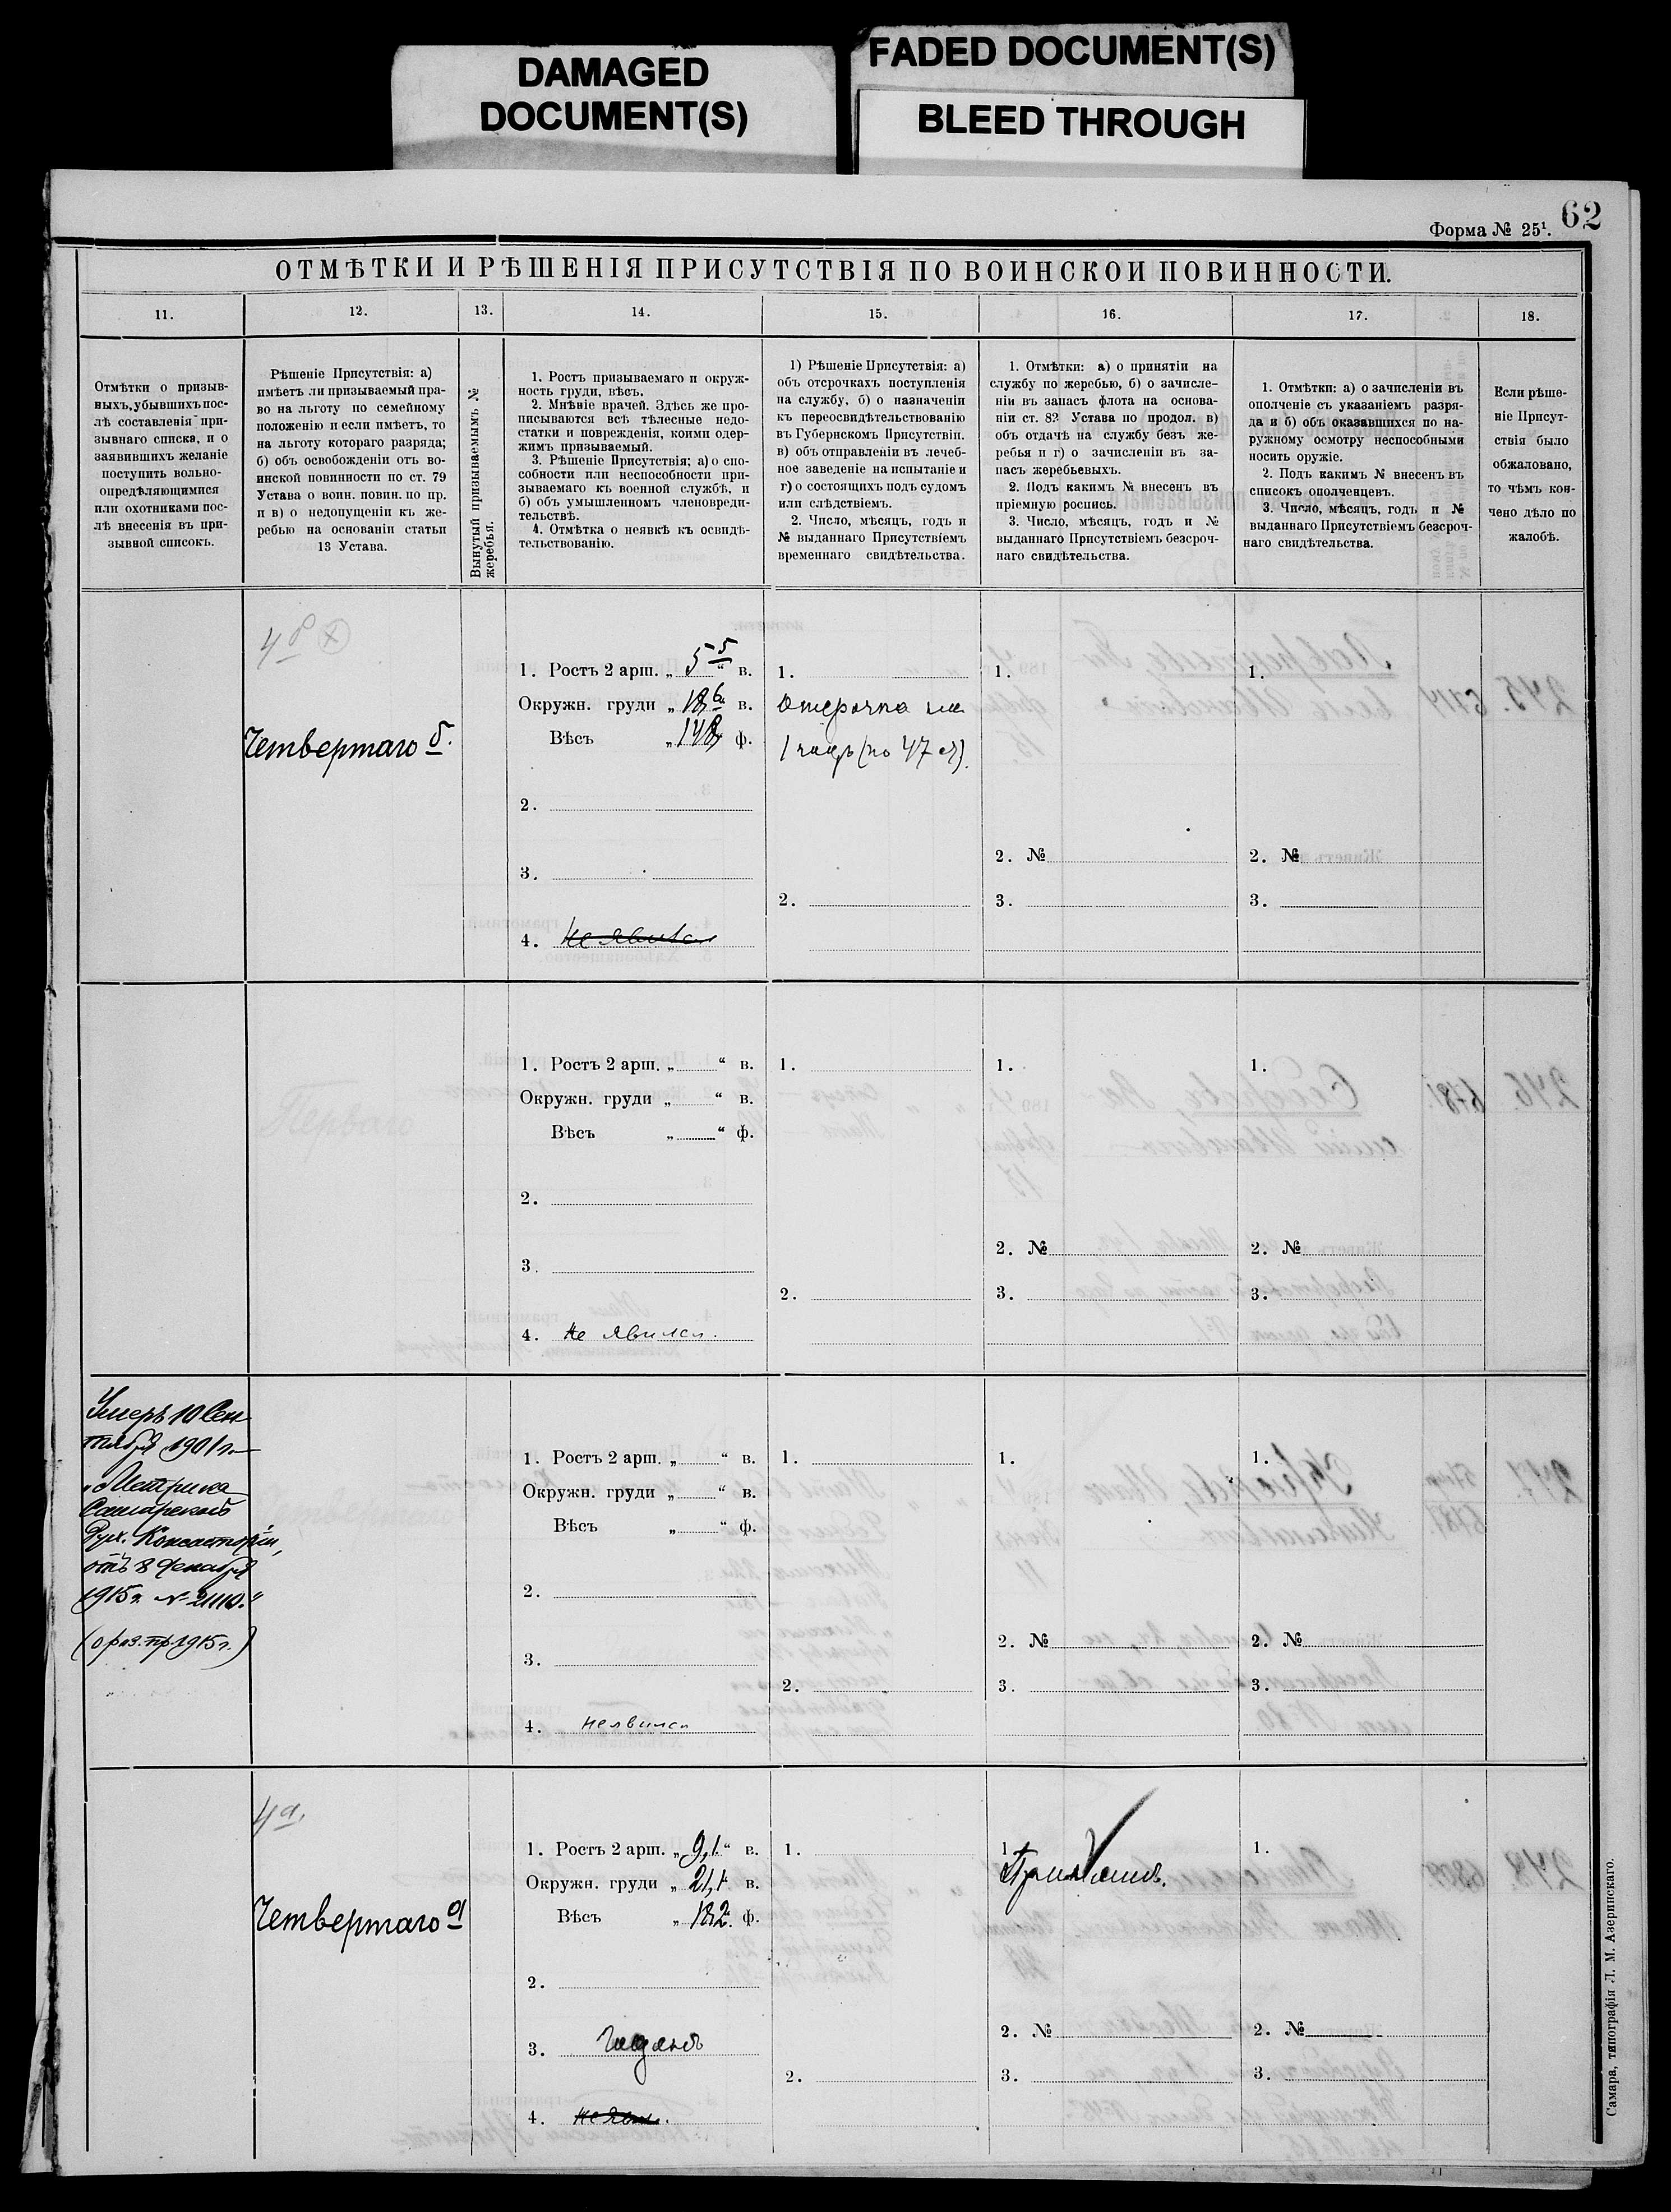 DAMAGED
DOCUMENT(S)
FADED DOCUMENT(S)
BLEED THROUGH
62
Форма № 25¹.
ОТМѢТКИ И РѢШЕНІЯ ПРИСУТСТВІЯ ПО ВОИНСКОЙ ПОВИННОСТИ.
11.
12.
13.
14.
15.
16.
17.
18.
Отмѣтки о призыв-
ныхъ, убывшихъ пос-
лѣ составленія при-
зывнаго списка, и о
заявившихъ желаніе
поступить вольно-
опредѣляющимися
или охотниками пос-
лѣ внесенія въ при-
зывной списокъ.
Рѣшеніе Присутствія: а)
имѣетъ ли призываемый пра-
во на льготу по семейному
положенію и если имѣетъ, то
на льготу котораго разряда;
б) объ освобожденіи отъ во-
инской повинности по ст. 79
Устава о воин. повин. по пр.
и в) о недопущеніи къ же-
ребью на основаніи статьи
13 Устава.
Вынутый призываемымъ №
жеребья.
1. Ростъ призываемаго и окруж-
ность груди, вѣсъ.
2. Мнѣніе врачей. Здѣсь же про-
писываются всѣ тѣлесные недо-
статки и поврежденія, коими одер-
жимъ призываемый.
3. Рѣшеніе Присутствія; а) о спо-
собности или неспособности при-
зываемаго къ военной службѣ, и
б) объ умышленномъ членовреди-
тельствѣ.
4. Отмѣтка о неявкѣ къ освидѣ-
тельствованію.
1) Рѣшеніе Присутствія: а)
объ отсрочкахъ поступленія
на службу, б) о назначеніи
къ переосвидѣтельствованію
въ Губернскомъ Присутствіи.
в) объ отправленіи въ лечеб-
ное заведеніе на испытаніе и
г) о состоящихъ подъ судомъ
или слѣдствіемъ.
2. Число, мѣсяцъ, годъ и
№ выданнаго Присутствіемъ
временнаго свидѣтельства.
1. Отмѣтки: а) о принятіи на
службу по жеребью, б) о зачисле-
ніи въ запасъ флота на основа-
ніи ст. 82 Устава по продол. в)
объ отдачѣ на службу безъ же-
ребья и г) о зачисленіи въ за-
пасъ жеребьевыхъ.
2. Подъ какимъ № внесенъ въ
пріемную роспись.
3. Число, мѣсяцъ, годъ и №
выданнаго Присутствіемъ безсроч-
наго свидѣтельства.
1. Отмѣтки: а) о зачисленіи въ
ополченіе съ указаніемъ разря-
да и б) объ оказавшихся по на-
ружному осмотру неспособными
носить оружіе.
2. Подъ какимъ № внесенъ въ
списокъ ополченцевъ.
3. Число, мѣсяцъ, годъ и №
выданнаго Присутствіемъ безсроч-
наго свидѣтельства.
Если рѣше-
ніе Присут-
ствія было
обжаловано,
то чѣмъ кон-
чено дѣло по
жалобѣ.
4 б
Четвертаго б.
1. Ростъ 2 арш. „ 5 5 “ в.
Окружн. груди „ 18 6 “ в.
Вѣсъ „ 148 ф.
2.
3.
4. Не явился
1.
Отсрочка на
1 годъ (по 47 ст).
2.
1.
2. №
3.
1.
2. №
3.
1. Ростъ 2 арш. „ “ в.
Окружн. груди „ “ в.
Вѣсъ „ “ ф.
2.
3.
4. Не явился.
1.
2.
1.
2. №
3.
1.
2. №
3.
Умеръ 10 Сен-
тября 1901 г.—
„Метрика
Самарской
Дух. Консисторіи,
отъ 8 Декабря
1915 г. № 21110.“
(о раз. пр. 1915 г.)
1. Ростъ 2 арш. „ “ в.
Окружн. груди „ “ в.
Вѣсъ „ “ ф.
2.
3.
4. Не явился
1.
2.
1.
2. №
3.
1.
2. №
3.
4 а.
Четвертаго а
1. Ростъ 2 арш. „ 9,1 “ в.
Окружн. груди „ 21,1 “ в.
Вѣсъ „ 182. ф.
2.
3. Годенъ
4. Не явил.
1.
2.
1.
Принятъ.
2. №
3.
1.
2. №
3.
Самара, типографія Л. М. Азеринскаго.